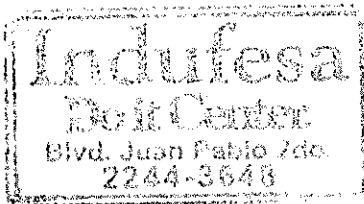 Indufesa
Do it Center
Blvd. Juan Pablo 2do.
2244-3648